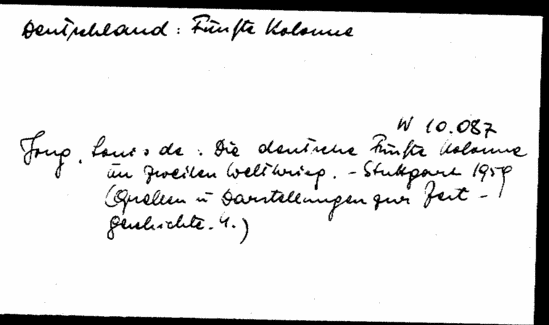 Deutschland: Fünfte Kolonne
W 10.087
Jong, Louis de: Die deutsche Fünfte Kolonne
im zweiten Weltkrieg. - Stuttgart 1959
(Quellen u Darstellungen zur Zeit-
geschichte. 4.)